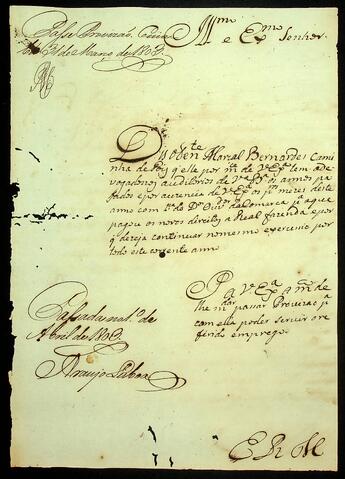 Passe Provizão.
de Março de 1803
Illmo e Exmo Senhor.
Diz o Tente Marçal Bernardes Cami
nha de q elle por m de V Exa tem ade
vogado nos auditorios de Va os annos pa
sados e por aurencia de V Exa os prs mezes deste
ano com Lça do Dor Ouvor da Comarca pa o que
pagou os novos direitos a Real fazenda e por
q dezeja continuar no mesmo exercicio por
todo este corrente anno
P a V Exa m de
lhe mdar passar Provizão pa
com ella poder servir o re
ferido emprego.
Passada no 1o de
Abril de 1803
Araujo Lisboa
E R M